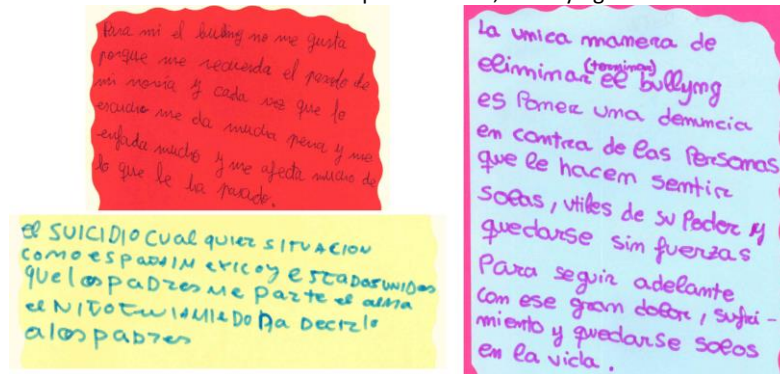 Para mi el buling no me gusta
porque me recuerda el pasado de
mi novia y cada vez que lo
escucho me da mucha pena y me
enfada mucho y me afecta mucho de
lo que le ha pasado.
el SUICIDIO CUAl quier SITUACION
como españa MEXICO y ESTADOS UNIDOS
que los padres me parte el alma
el NIÑO tuvo MIEDO Da Decirlo
a los padres
La umica mamera de
elimimar (terminar) el bullymg
es Pomer uma demumcia
em comtra de las Persomas
que le hacem semtir
solas, utiles de su Poder y
quedarse sim fuerzas
Para seguir adelamte
com ese gram dolor, sufri-
miemto y quedarse solos
em la vida.